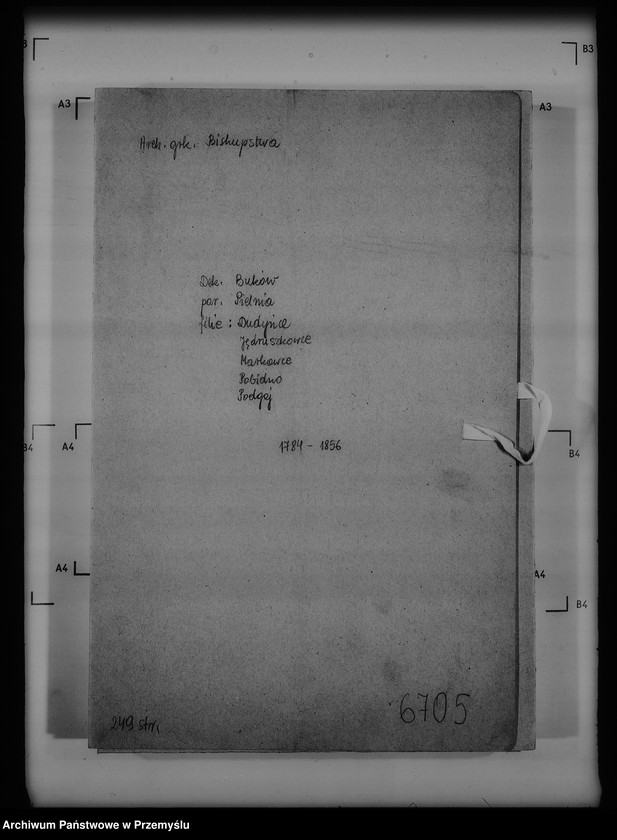 B3
A3
A3
Arch. grk. Biskupstwa
Dek. Buków
par. Pielnia
filie : Dudyńce
Jędruszkowce
Markowce
Pobidno
Podgaj
1784 - 1856
B4
A4
B4
A4
A4
B4
249 str.
6705
Archiwum Państwowe w Przemyślu